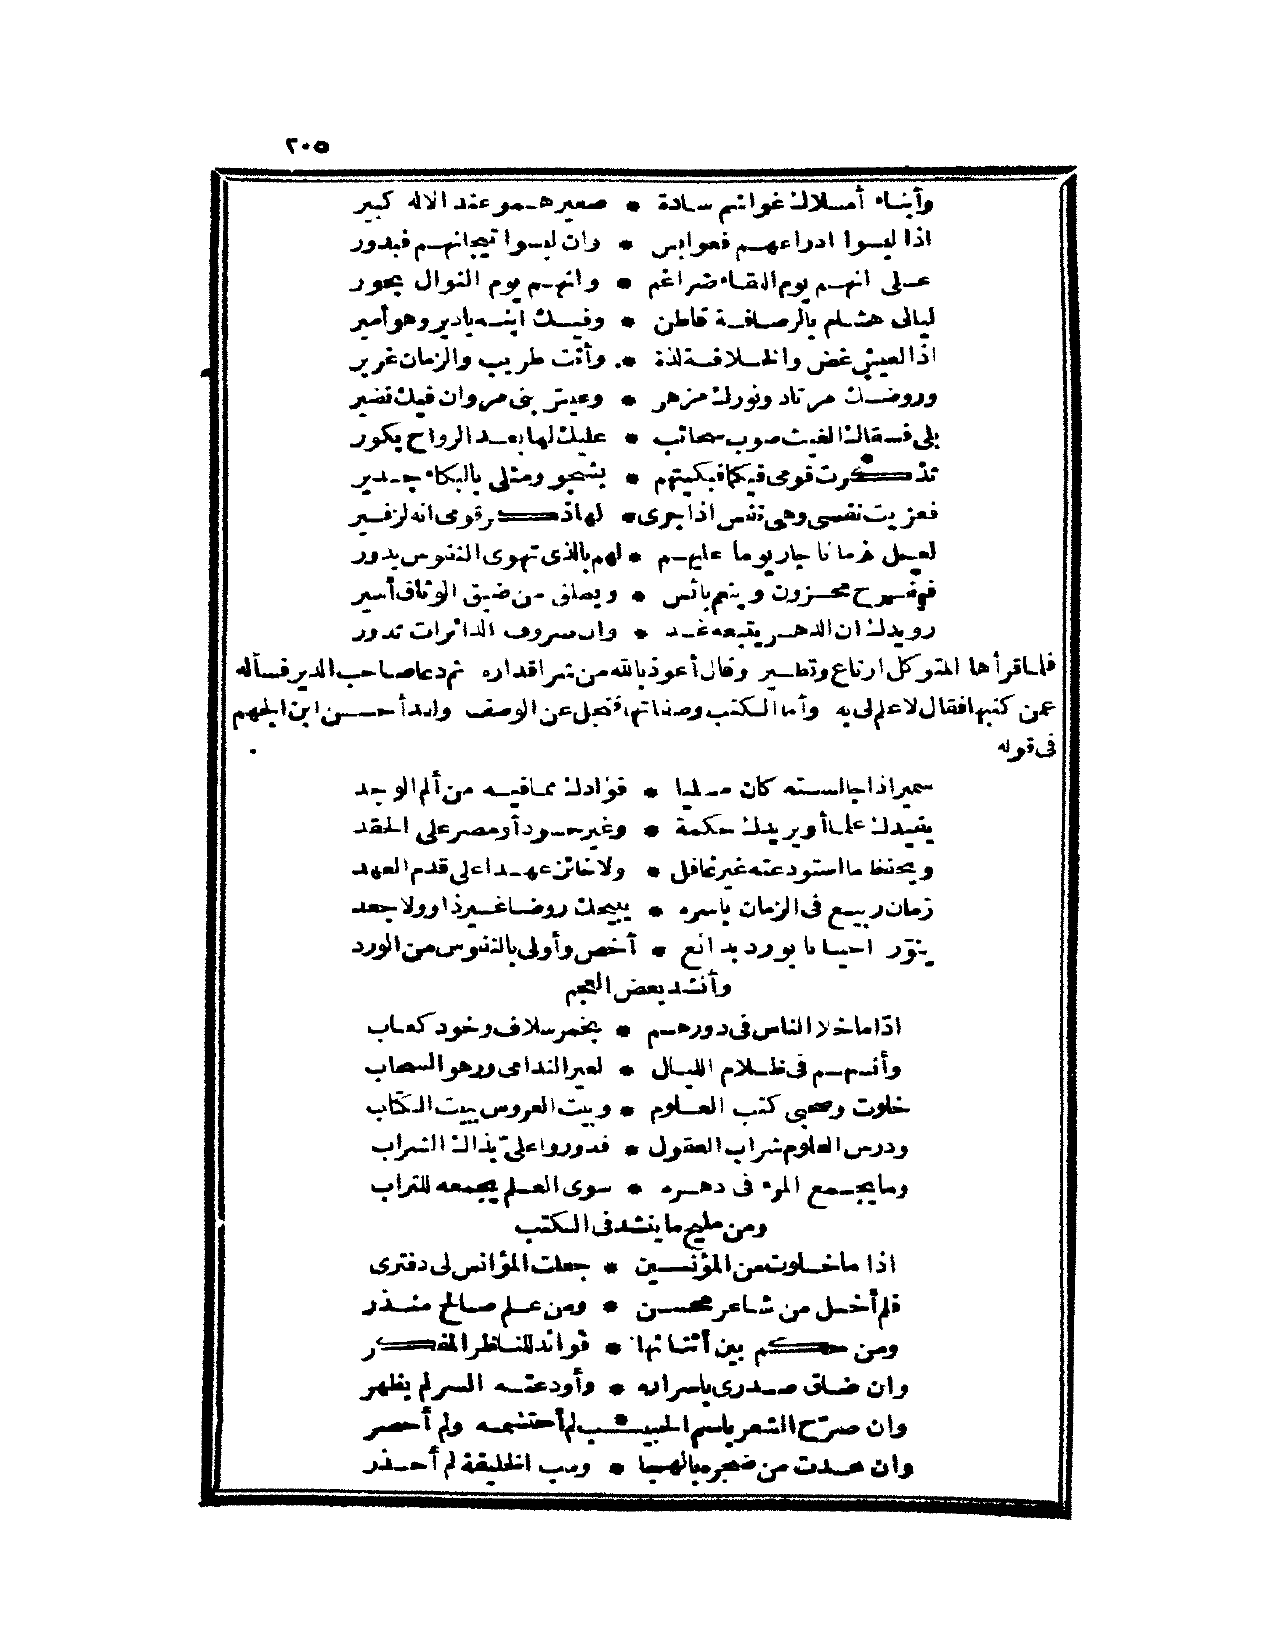 ٢٠٥
وأبناء أمــلاك غواشم سادة * صغيرهــمو عند الاله كبير
اذا لبسوا ادراعهـم فعوابس * وان لبسوا تيجانهـم فبدور
عــلى انهــم يوم اللقاء ضراغم * وانهــم يوم النوال بحور
ليالى هشام بالرصافـة قاطن * وفيـك ابنـه ياديروهو أمير
اذا لعيش غض والخلافة لذة * وأنت طريب والزمان غرير
وروضــك مرتاد ونورك مزهر * وعيش بنى مروان فيك نضير
بلى فسقاك الغيث صوب سحائب * عليك لها بعـد الرواح بكور
تذكرت قومى فيكما فبكيتهم * بشجو ومثلى بالبكاء جـدير
فعزيت نفسى وهى نفس اذا جرى * لهاذكر قومى انه لزفـير
لعـل زمانا جار يوما عليهـم * لهم بالذى تهوى النفوس يدور
فيفـرح محـزون وينعم بائس * ويطلق من ضيق الوثاق أسير
رويدك ان الدهـر يتبعه غـد * وان صروف الدائرات تدور
فلما قرأها المتوكل ارتاع وتطـير وقال أعوذ بالله من شر اقداره ثم دعا صاحب الدير فسأله
عمن كتبها فقال لاعلم لى به وأما الـكتب وصفاتها فتجل عن الوصف ولقد أحســن ابن الجهم
فى قوله
سمير اذا جالسـته كان مسليا * فؤادك مما فيـه من ألم الوجد
يفيدك علما أويريدك حكمة * وغير حسود أومصر على الحقد
ويحفظ ما استودعته غير غافل * ولا خائن عهـدا على قدم العهد
زمان ربيـع فى الزمان باسره * يبيحك روضا غـير ذاو ولا جعد
ينوّر احيـانا بورد بدائع * أخص وأولى بالنفوس من الورد
وأنشد بعض العجم
اذا ماخلا الناس فى دورهـم * بخمر سلاف وخود كعاب
وأنسهـم فى ظـلام الليـال * لعبر الندامى ورهو السحاب
خلوت وصحبى كتب العـلوم * وبيت العروس ببيت الـكتاب
ودرس العلوم شراب العقول * فدوروا علىّ بذاك الشراب
وما يجـمع المرء فى دهـره * سوى العـلم يجمعه للتراب
ومن مليح ما ينشد فى الـكتب
اذا ماخـلوت من المؤنسـين * جعلت المؤانس لى دفترى
فلم أخـل من شاعر محسـن * ومن عـلم صالح منـذر
ومن حكم بين أثنائها * فوائد للناظر المفكر
وان ضاق صـدرى باسراره * وأودعتـه السر لم يظهر
وان صرّح الشعر باسم الحبيـب لم أحتشمه ولم أحصر
وان عـدت من ضجره بالهجا * وسب الخليفة لم أحـذر